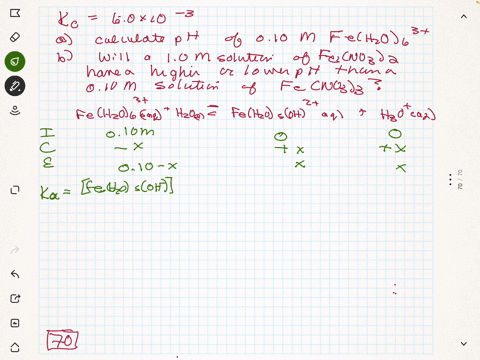 Kc = 6.0 x 10 -3
a) calculate pH of 0.10 M Fe(H2O)6 3+
b) Will a 1.0 M solution of Fe(NO3)2
have a higher or lower pH than a
0.10 M solution of Fe(NO3)3?
Fe(H2O)6 3+ (aq) + H2O(l) = Fe(H2O)5(OH) 2+ aq) + H3O+ (aq)
I 0.10m 0 0
C - x + x + x
E 0.10-x x x
Ka = [Fe(H2O)5(OH)]
70
70 / 70